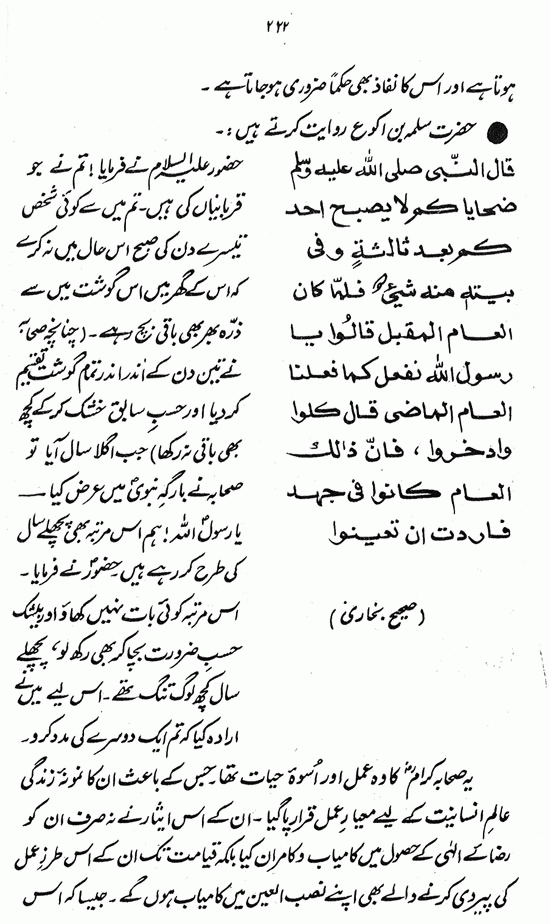 ۲۲۲
ہوتا ہے اور اس کا نفاذ بھی حکماً ضروری ہو جاتا ہے ۔
● حضرت سلمہ بن اکوع روایت کرتے ہیں :۔
قال النّبی صلی اللہ علیہ وسلم
ضحایا کم لا یصبح احد
کم بعد ثالثةٍ و فی
بیتہ منہ شیئ فلمّا کان
العام المقبل قالُوا یا
رسول اللہ نفعل کما فعلنا
العام الماضی قال کلوا
وادخروا ، فانّ ذالک
العام کانوا فی جہد
فاردت ان تعینوا
(صحیح بخاری)
حضور علیہ السلام نے فرمایا ! تم نے جو
قربانیاں کی ہیں۔ تم میں سے کوئی شخص
تیسرے دن کی صبح اس حال میں نہ کرے
کہ اس کے گھر میں اس گوشت میں سے
ذرّہ بھر بھی باقی بچ رہے ۔ (چنانچہ صحابہ
نے تین دن کے اندر اندر تمام گوشت تقسیم
کر دیا اور حسبِ سابق خشک کر کے کچھ
بھی باقی نہ رکھا) جب اگلا سال آیا تو
صحابہ نے بارگہِ نبویؐ میں عرض کیا —
یا رسولؐ اللہ ! ہم اس مرتبہ بھی پچھلے سال
کی طرح کر رہے ہیں۔ حضورؐ نے فرمایا ۔
اس مرتبہ کوئی بات نہیں کھاؤ اور بیشک
حسبِ ضرورت بچا کر بھی رکھ لو، پچھلے
سال کچھ لوگ تنگ تھے ۔ اس لیے میں نے
ارادہ کیا کہ تم ایک دوسرے کی مدد کرو۔
یہ صحابہ کرامؓ کا وہ عمل اور اُسوۂ حیات تھا۔ جس کے باعث ان کا نمونۂ زندگی
عالمِ انسانیت کے لیے معیارِ عمل قرار پا گیا ۔ ان کے اس ایثار نے نہ صرف ان کو
رضائے الٰہی کے حصول میں کامیاب و کامران کیا بلکہ قیامت تک ان کے اس طرزِ عمل
کی پیروی کرنے والے بھی اپنے نصب العین میں کامیاب ہوں گے ۔ جیسا کہ اس